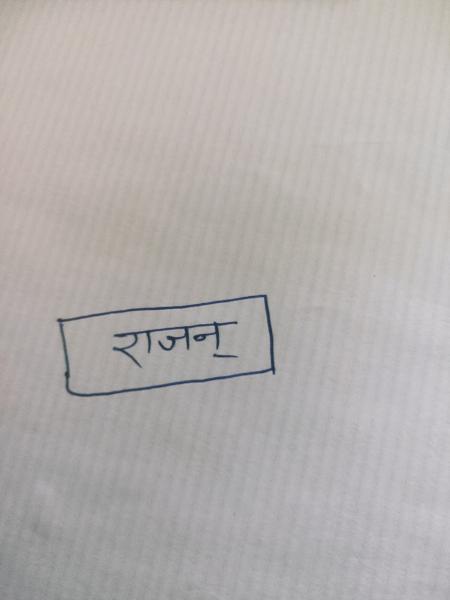 राजन्